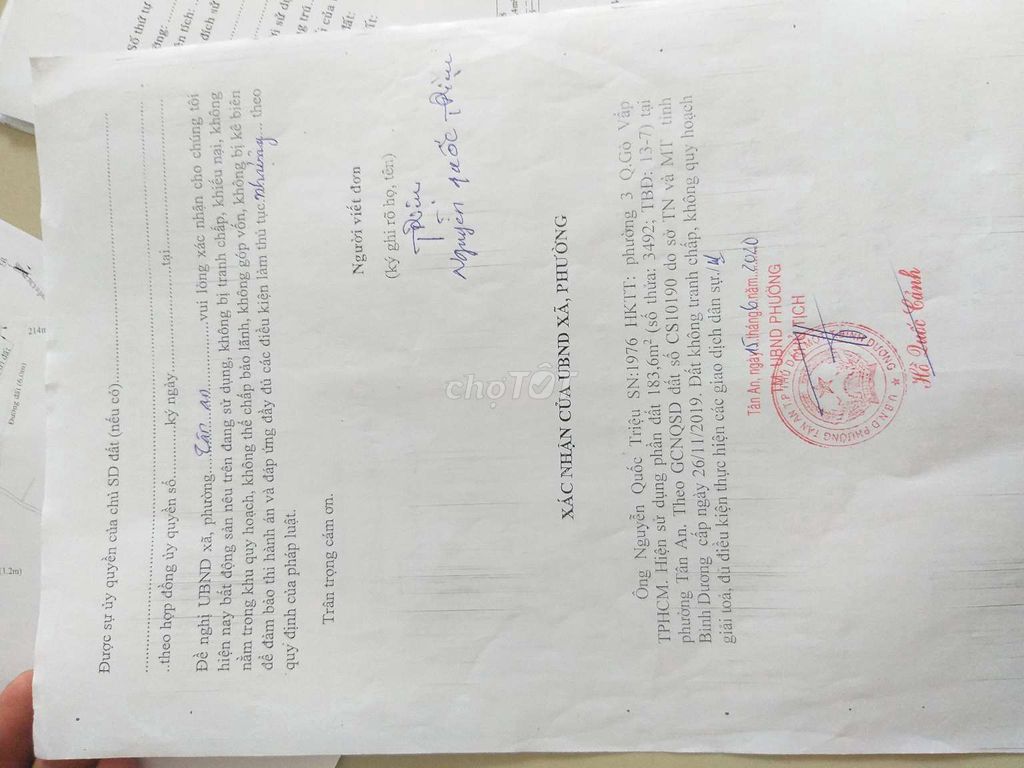 Được sự ủy quyền của chủ SD đất (nếu có)..............................................................
..theo hợp đồng ủy quyền số..........ký ngày....................tại..............................
Đề nghị UBND xã, phường....Tân.....An............vui lòng xác nhận cho chúng tôi
hiện nay bất động sản nêu trên đang sử dụng, không bị tranh chấp, khiếu nại, không
nằm trong khu quy hoạch, không thế chấp bảo lãnh, không góp vốn, không bị kê biên
để đảm bảo thi hành án và đáp ứng đầy đủ các điều kiện làm thủ tục... theo
quy định của pháp luật.
Trân trọng cám ơn.
Người viết đơn
(ký ghi rõ họ, tên)
Nguyễn Quốc Triệu
XÁC NHẬN CỦA UBND XÃ, PHƯỜNG
Ông Nguyễn Quốc Triệu SN:1976 HKTT: phường 3 Q.Gò Vấp
TPHCM. Hiện sử dụng phần đất 183,6m² (số thửa: 3492; TBĐ: 13-7) tại
phường Tân An. Theo GCNQSD đất số CS10190 do sở TN và MT tỉnh
Bình Dương cấp ngày 26/11/2019. Đất không tranh chấp, không quy hoạch
giải toả, đủ điều kiện thực hiện các giao dịch dân sự./.
Tân An, ngày 15 tháng 6 năm 2020
TM. UBND PHƯỜNG
CHỦ TỊCH
U.B.N.D PHƯỜNG TÂN AN T.P THỦ DẦU MỘT T. BÌNH DƯƠNG
Hà Quốc Cảnh
chợTỐT
Số thứ tự
214n
Đường đất (6.0m)